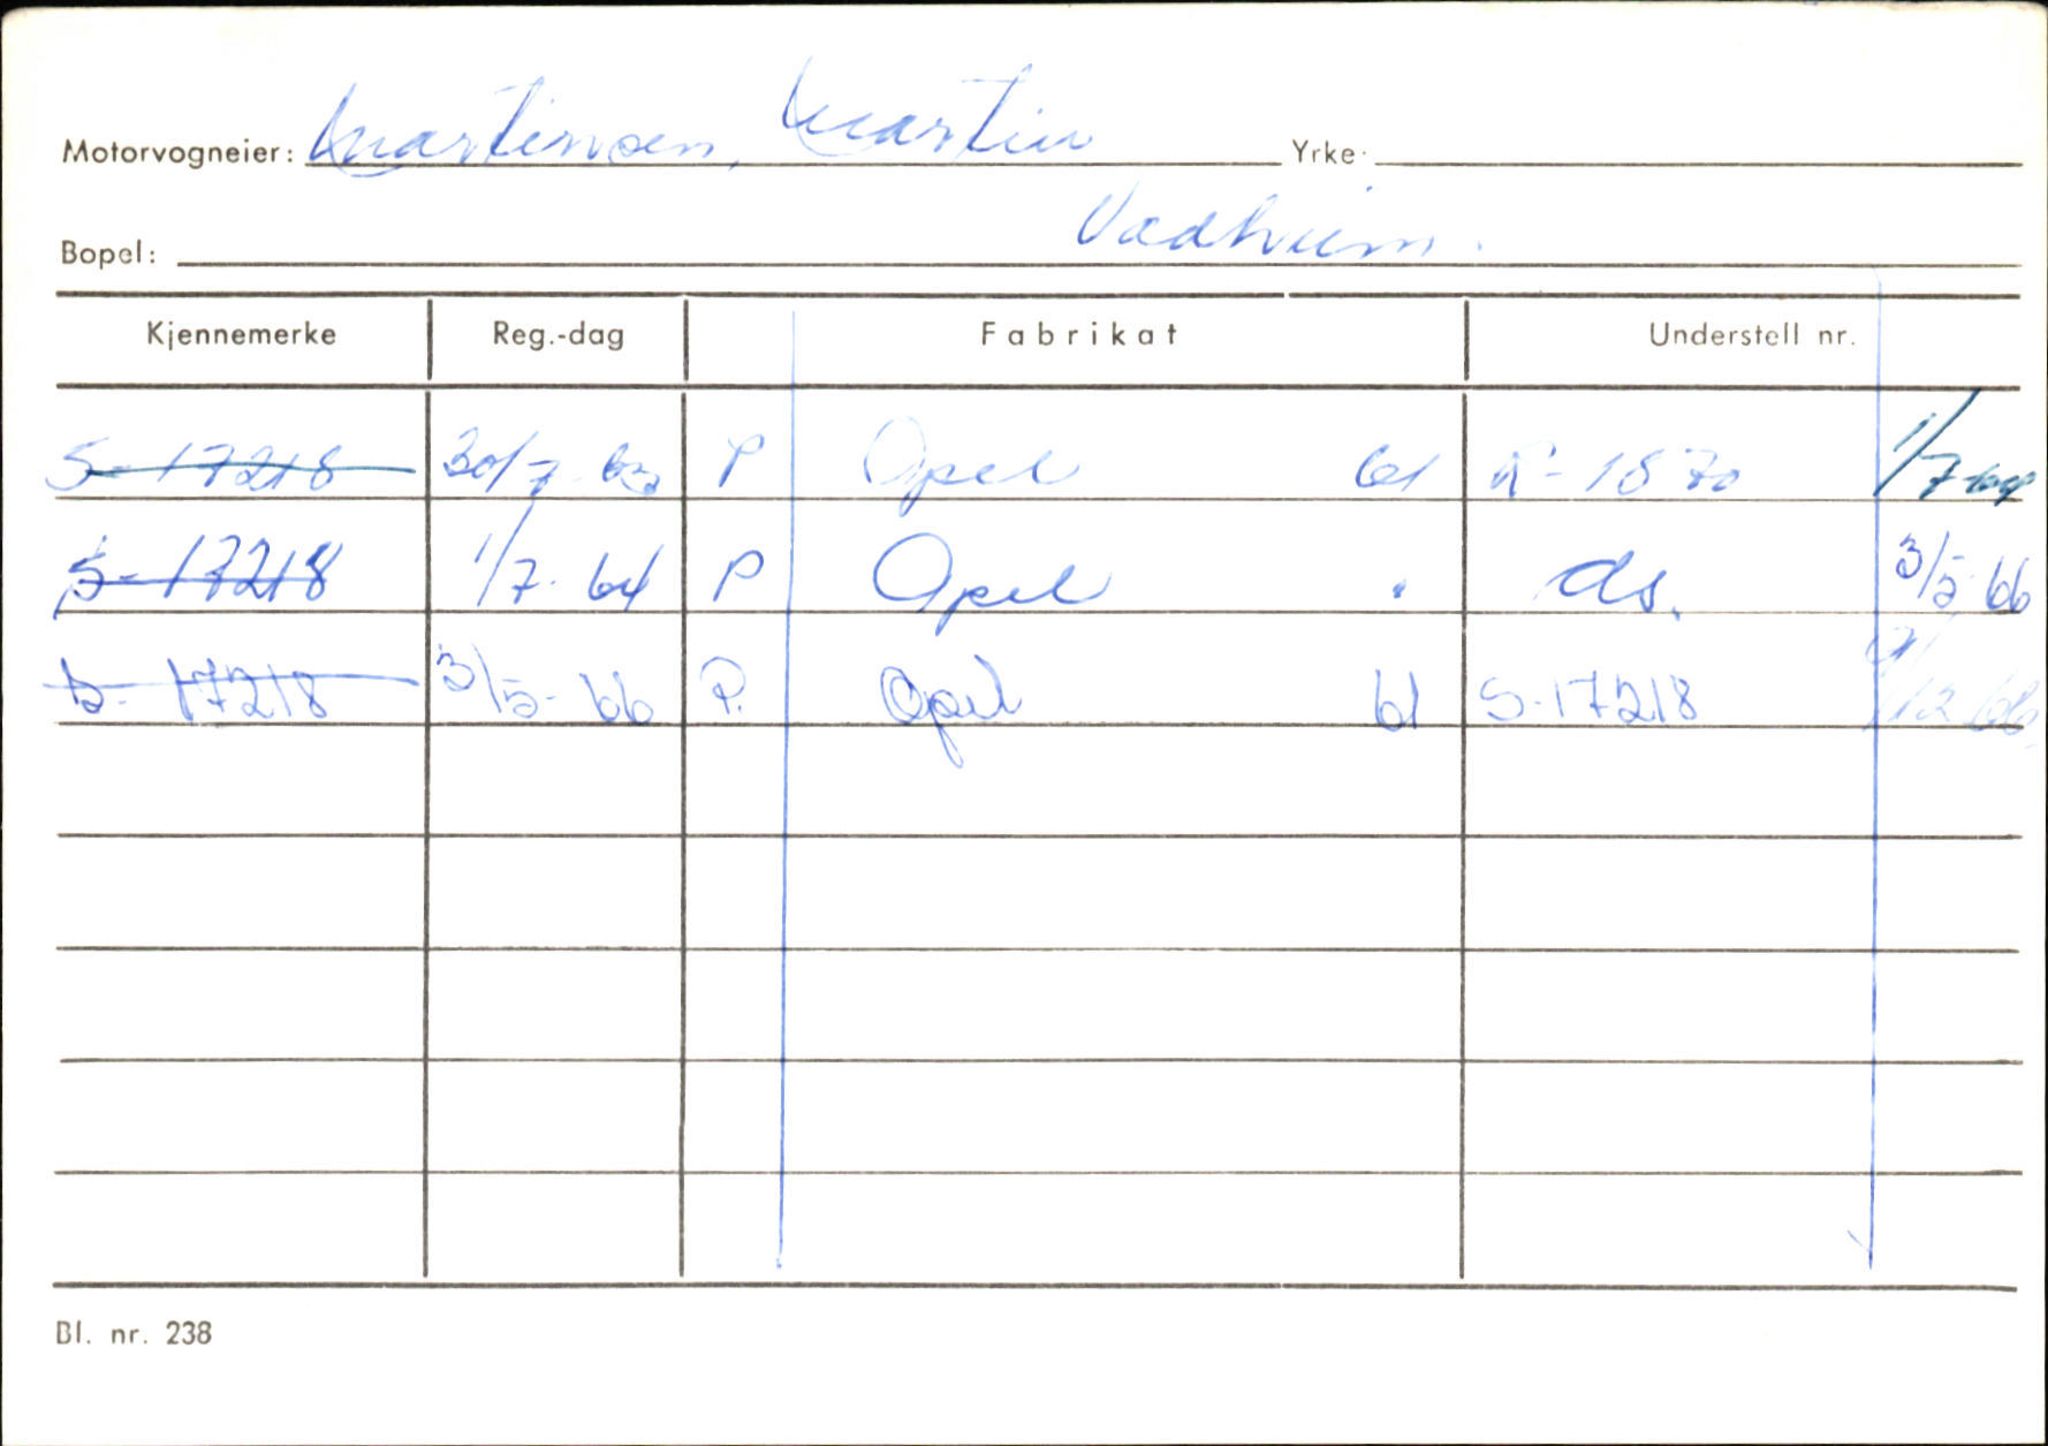 Motorvogneier: Martinsen, Martin Yrke:
Bopel: Vadheim.
Kjennemerke Reg.-dag Fabrikat Understell nr.
S-17218 30/7-63 P Opel 61 R-1870 1/7-64
S-17218 1/7-64 P Opel . ds. 3/5-66
S-17218 3/5-66 P. Opel 61 S-17218 /12-66
Bl. nr. 238